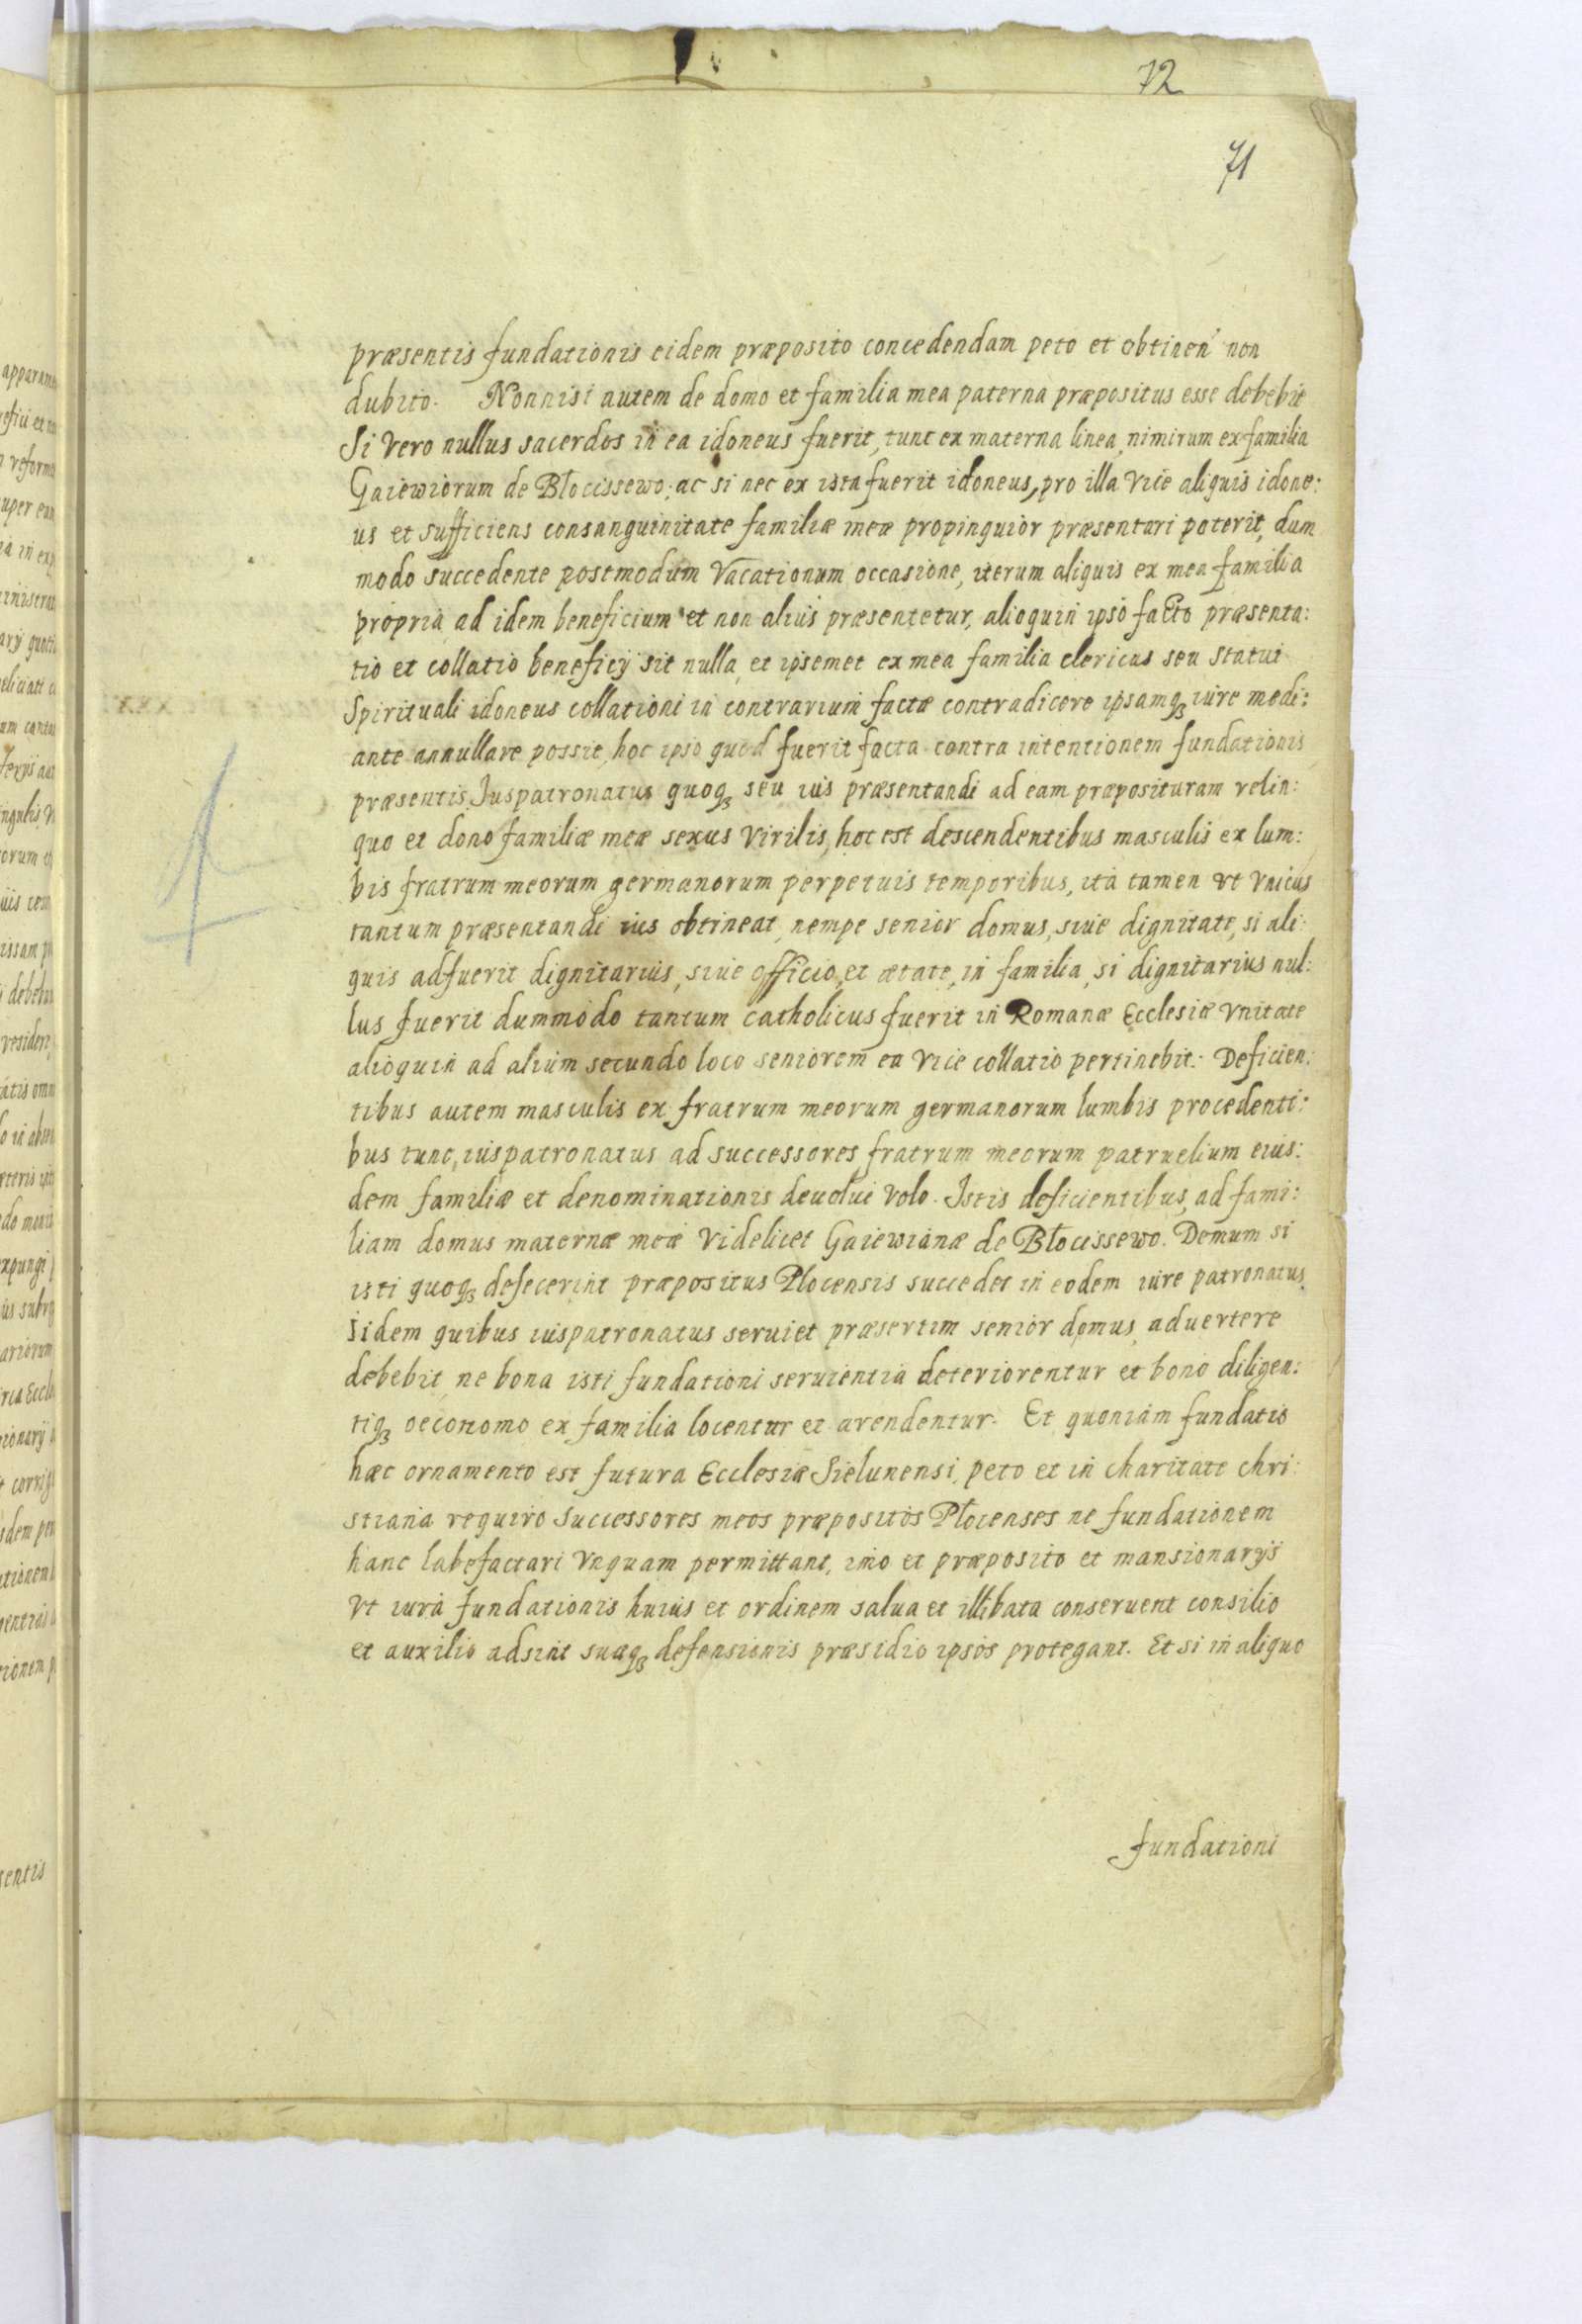 72
71
præsentis fundationis eidem præposito concedendam peto et obtinen non
dubito. Nonnisi autem de domo et familia mea paterna præpositus esse debebit
Si vero nullus sacerdos in ea idoneus fuerit, tunc ex materna linea, nimirum ex familia
Gaiewiorum de Błocissewo, ac si nec ex ista fuerit idoneus, pro illa vice aliquis idone:
us et sufficiens consanguinitate familiæ meæ propinquior præsentari poterit, dum
modo succedente postmodum Vacationum occasione, iterum aliquis ex mea familia
propria ad idem beneficium et non alius præsentetur, alioquin ipso facto præsenta:
tio et collatio beneficij sit nulla, et ipsemet ex mea familia clericus seu statui
Spirituali idoneus collationi in contrarium factæ contradicere ipsamqꝫ iure medi:
ante annullare possit, hoc ipso quod fuerit facta contra intentionem fundationis
præsentis. Juspatronatus quoqꝫ seu ius præsentandi ad eam præposituram relin:
quo et dono familiæ meæ sexus virilis, hoc est descendentibus masculis ex lum:
bis fratrum meorum germanorum perpetuis temporibus, ita tamen vt vnicus
tantum præsentandi ius obtineat, nempe senior domus, siue dignitate, si ali:
quis adfuerit dignitarius, siue officio, et ætate, in familia, si dignitarius nul:
lus fuerit dummodo tantum catholicus fuerit in Romanæ Ecclesiæ vnitate
alioquin ad alium secundo loco seniorem ea vice collatio pertinebit. Deficien:
tibus autem masculis ex fratrum meorum germanorum lumbis procedenti:
bus tunc, iuspatronatus ad successores fratrum meorum patruelium eius:
dem familiæ et denominationis deuolui volo. Istis deficientibus, ad fami:
liam domus maternæ meæ videlicet Gaiewianæ de Błocissewo. Demum si
isti quoqꝫ defecerint præpositus Płocensis succedet in eodem iure patronatus.
Iidem quibus iuspatronatus seruiet præsertim senior domus, aduertere
debebit, ne bona isti fundationi seruientia deteriorentur et bono diligen:
tiqꝫ oeconomo ex familia locentur et arendentur. Et quoniam fundatio
hæc ornamento est futura Ecclesiæ Sielunensi, peto et in charitate chri:
stiana requiro successores meos præpositos Płocenses ne fundationem
hanc labefactari vnquam permittant, imo et præposito et mansionarijs
vt iura fundationis huius et ordinem salua et illibata conseruent consilio
et auxilio adsint suæqꝫ defensionis præsidio ipsos protegant. Et si in aliquo
fundationi